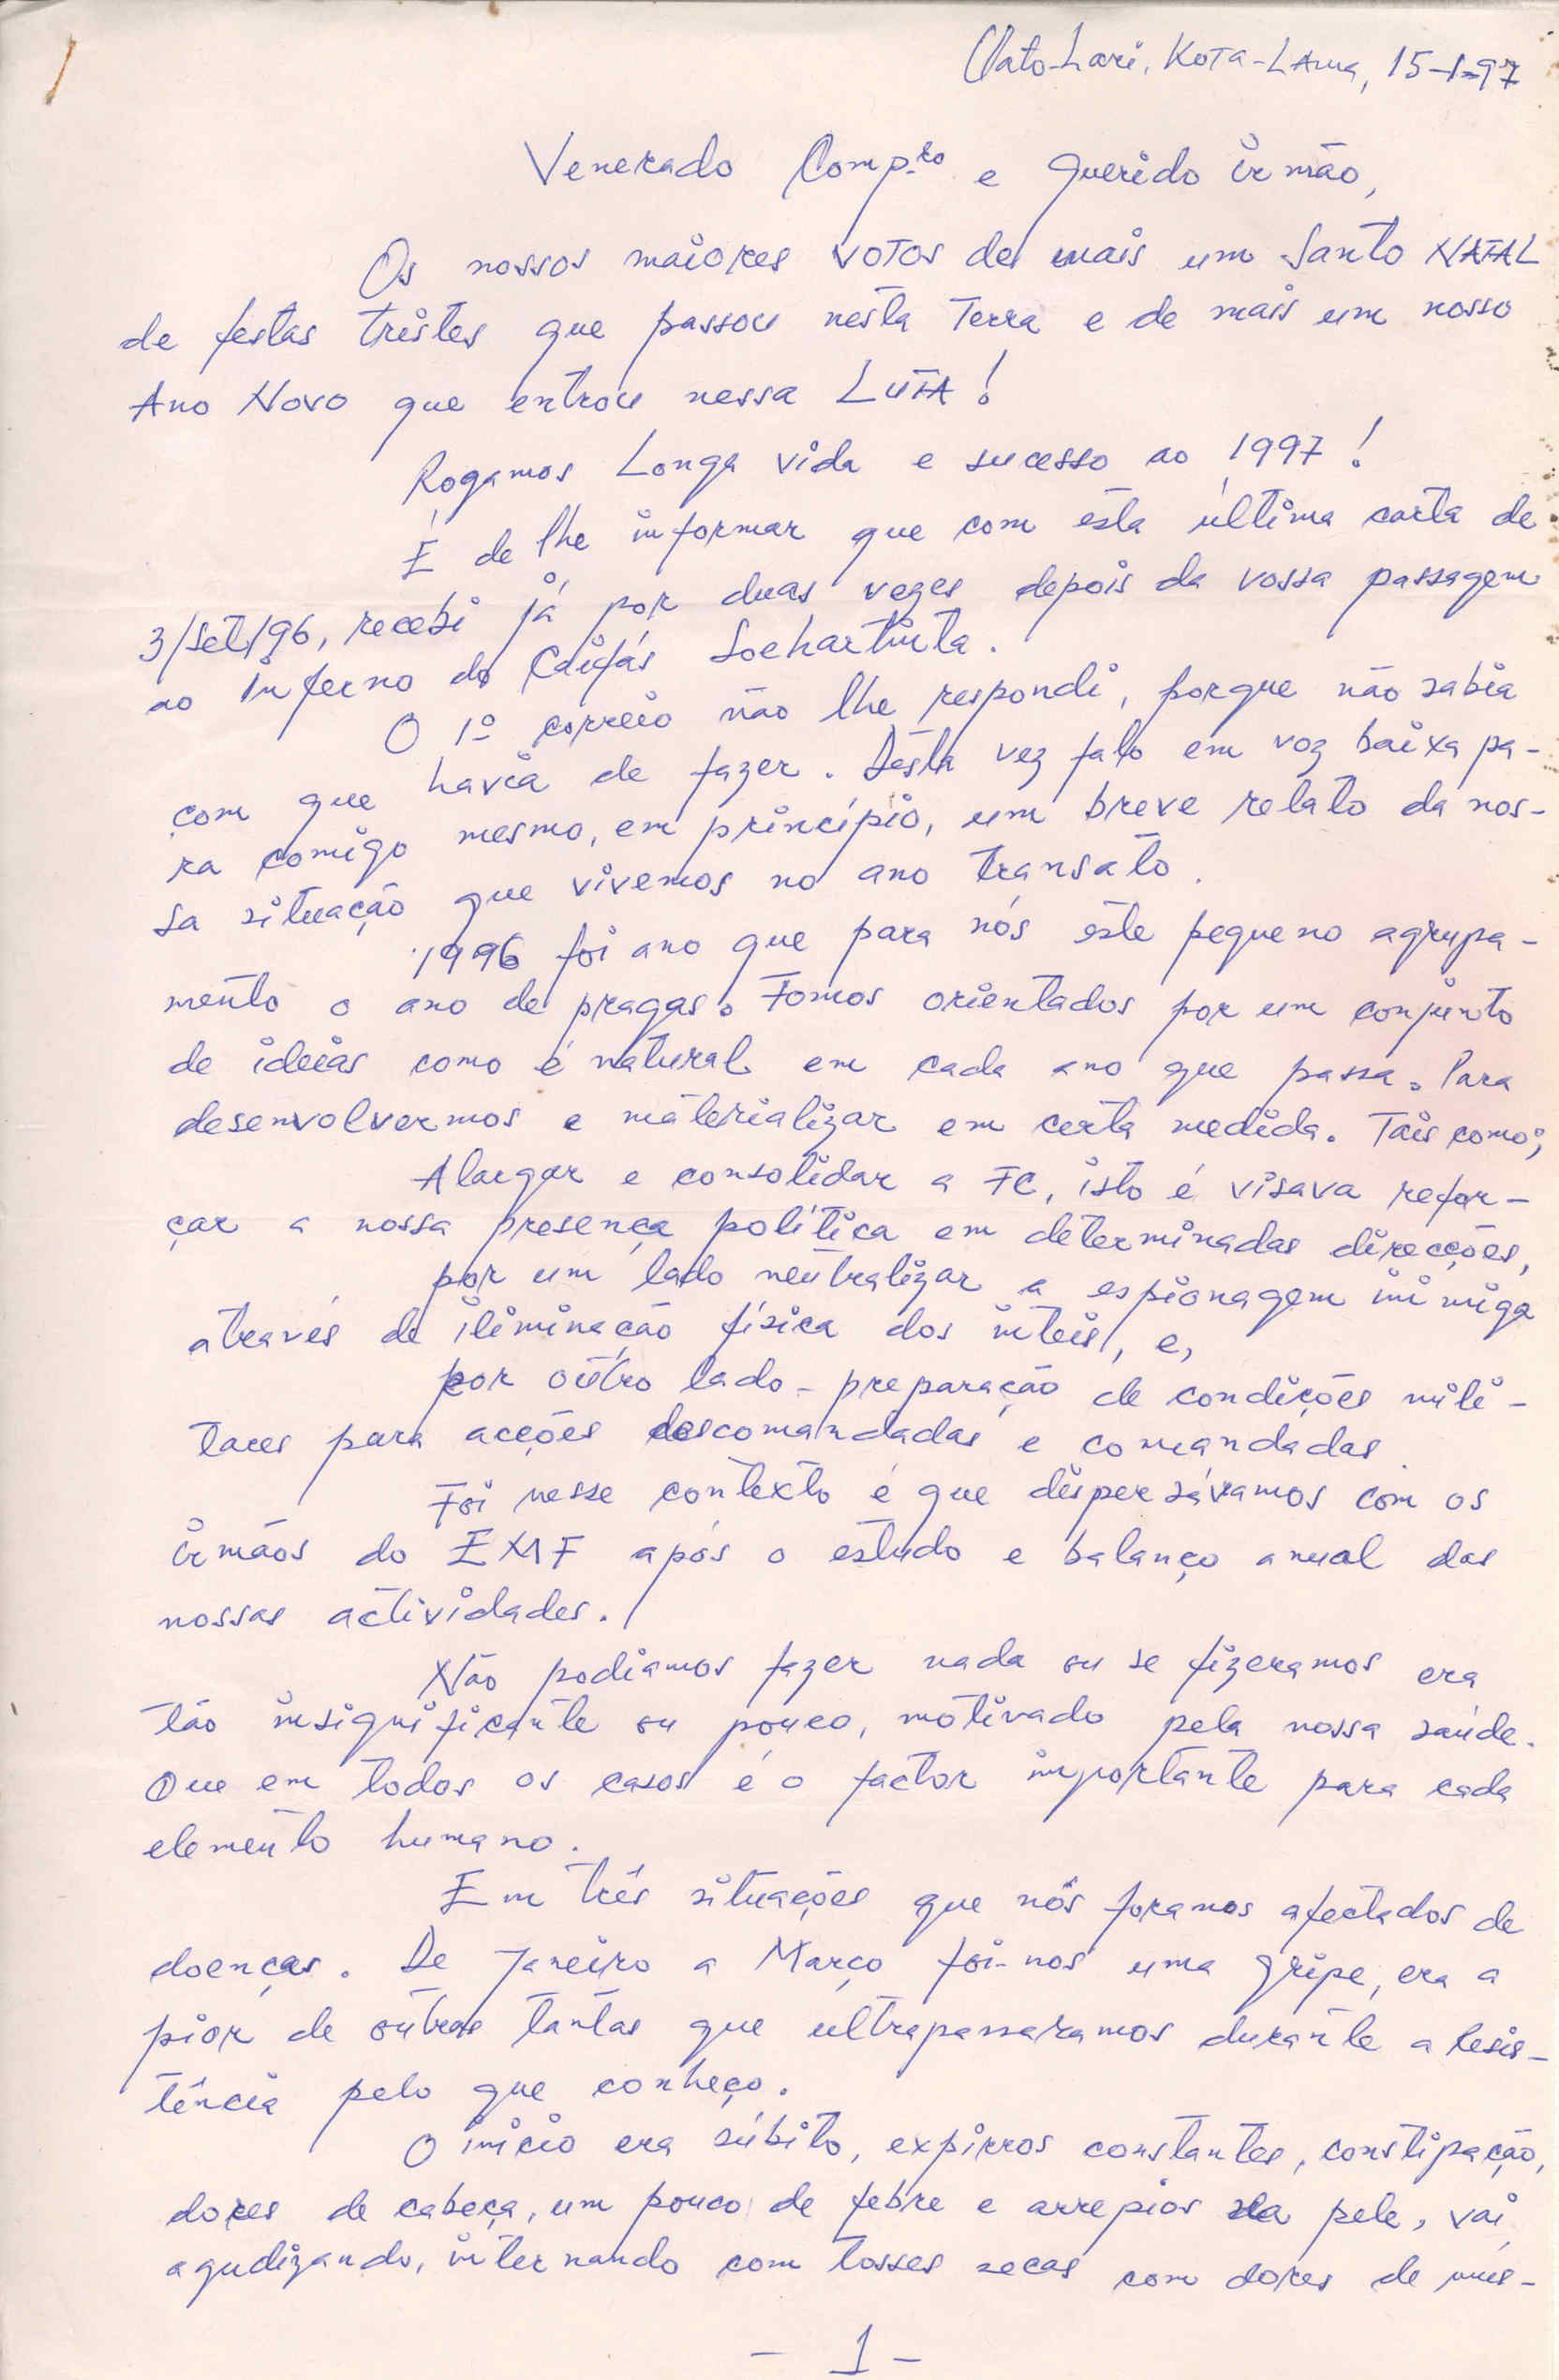 Uato-Lari, Kota-Lama, 15-1-97
Venerado Comp.ro e querido irmão,
Os nossos maiores votos de mais um Santo NATAL
de festas tristes que passou nesta Terra e de mais um nosso
Ano Novo que entrou nessa LUTA!
Rogamos Longa vida e sucesso ao 1997!
É de lhe informar que com esta última carta de
3/Set/96, recebi já por duas vezes depois da vossa passagem
ao Inferno do Caifás Soehartinta.
O 1º correio não lhe respondi, porque não sabia
com que havia de fazer. Desta vez falo em voz baixa pa-
ra comigo mesmo, em princípio, um breve relato da nos-
sa situação que vivemos no ano transato.
1996 foi ano que para nós êste pequeno agrupa-
mento o ano de pragas. Fomos orientados por um conjunto
de ideias como é natural em cada ano que passa. Para
desenvolvermos e materializar em certa medida. Tais como;
Alargar e consolidar a FC, isto é visava refor-
çar a nossa presença política em determinadas direcções,
por um lado neutralizar a espionagem inimiga
através de iliminação física dos inteis, e,
por outro lado - preparação de condições mili-
tares para acções descomandadas e comandadas.
Foi nesse contexto é que dispersávamos com os
irmãos do EMF após o estudo e balanço anual das
nossas actividades.
Não podiamos fazer nada ou se fizeramos era
tão insignificante ou pouco, motivado pela nossa saúde.
Que em todos os casos é o factor importante para cada
elemento humano.
Em três situações que nós foramos afectados de
doenças. De Janeiro a Março foi-nos uma gripe, era a
pior de outras tantas que ultrapassaramos durante a Resis-
tência pelo que conheço.
O inicio era súbito, expirros constantes, constipação,
dores de cabeça, um pouco de febre e arrepios da pele, vai
agudizando, internando com tosses secas com dores de mus-
- 1 -